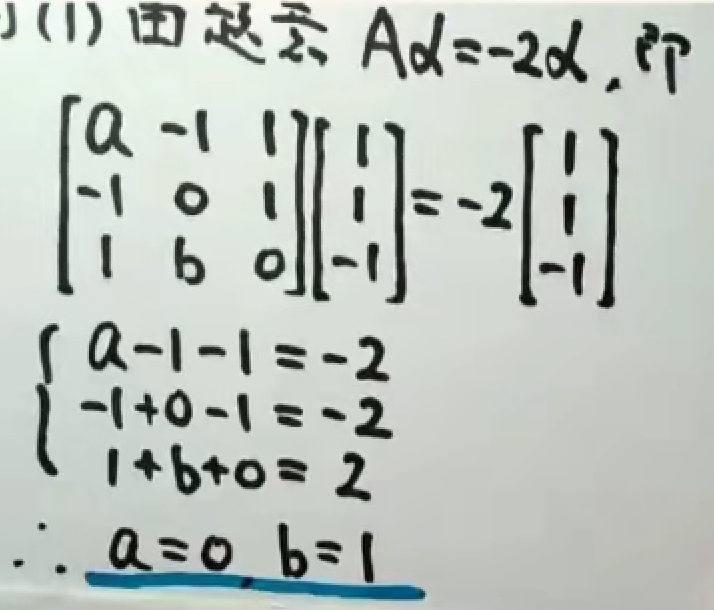 (1) 由题意 Aα=-2α, 即
[a -1 1; -1 0 1; 1 b 0][1; 1; -1] = -2[1; 1; -1]
a-1-1=-2
-1+0-1=-2
1+b+0=2
∴ a=0, b=1